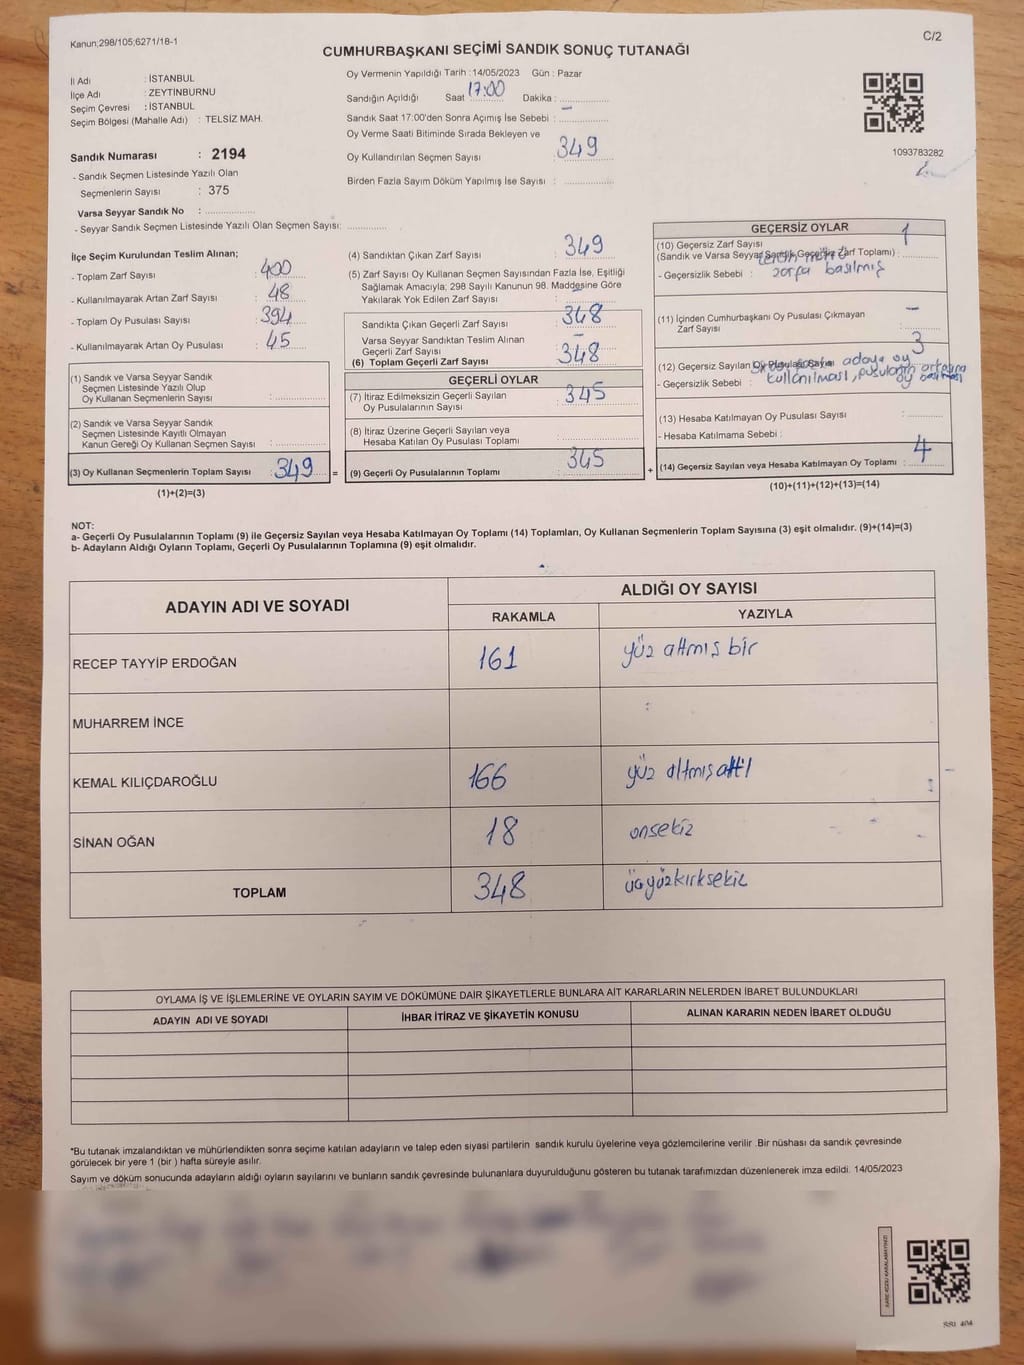 Kanun;298/105;6271/18-1
C/2
CUMHURBAŞKANI SEÇİMİ SANDIK SONUÇ TUTANAĞI
İl Adı : İSTANBUL
İlçe Adı : ZEYTİNBURNU
Seçim Çevresi : İSTANBUL
Seçim Bölgesi (Mahalle Adı) : TELSİZ MAH.
Sandık Numarası : 2194
- Sandık Seçmen Listesinde Yazılı Olan
Seçmenlerin Sayısı : 375
Varsa Seyyar Sandık No :
- Seyyar Sandık Seçmen Listesinde Yazılı Olan Seçmen Sayısı:
Oy Vermenin Yapıldığı Tarih :14/05/2023 Gün : Pazar
Sandığın Açıldığı Saat 17:00 Dakika : –
Sandık Saat 17.00'den Sonra Açımış İse Sebebi :
Oy Verme Saati Bitiminde Sırada Bekleyen ve
Oy Kullandırılan Seçmen Sayısı : 349
Birden Fazla Sayım Döküm Yapılmış İse Sayısı :
1093783282
İlçe Seçim Kurulundan Teslim Alınan;
- Toplam Zarf Sayısı : 400
- Kullanılmayarak Artan Zarf Sayısı : 48
- Toplam Oy Pusulası Sayısı : 394
- Kullanılmayarak Artan Oy Pusulası : 45
(1) Sandık ve Varsa Seyyar Sandık
Seçmen Listesinde Yazılı Olup
Oy Kullanan Seçmenlerin Sayısı :
(2) Sandık ve Varsa Seyyar Sandık
Seçmen Listesinde Kayıtlı Olmayan
Kanun Gereği Oy Kullanan Seçmen Sayısı :
(3) Oy Kullanan Seçmenlerin Toplam Sayısı : 349 =
(1)+(2)=(3)
(4) Sandıktan Çıkan Zarf Sayısı : 349
(5) Zarf Sayısı Oy Kullanan Seçmen Sayısından Fazla İse, Eşitliği
Sağlamak Amacıyla; 298 Sayılı Kanunun 98. Maddesine Göre
Yakılarak Yok Edilen Zarf Sayısı : –
Sandıkta Çıkan Geçerli Zarf Sayısı : 348
Varsa Seyyar Sandıktan Teslim Alınan
Geçerli Zarf Sayısı : –
(6) Toplam Geçerli Zarf Sayısı : 348
GEÇERLİ OYLAR
(7) İtiraz Edilmeksizin Geçerli Sayılan
Oy Pusulalarının Sayısı : 345
(8) İtiraz Üzerine Geçerli Sayılan veya
Hesaba Katılan Oy Pusulası Toplamı :
(9) Geçerli Oy Pusulalarının Toplamı : 345 +
GEÇERSİZ OYLAR
(10) Geçersiz Zarf Sayısı 1
(Sandık ve Varsa Seyyar Sandık Geçersiz Zarf Toplamı) :
- Geçersizlik Sebebi : zarfa basılmış
(11) İçinden Cumhurbaşkanı Oy Pusulası Çıkmayan
Zarf Sayısı : –
(12) Geçersiz Sayılan Oy Pusulası Sayısı : 3
adaya oy
- Geçersizlik Sebebi : kullanılması, pusulanın ortasına
oy basılması
(13) Hesaba Katılmayan Oy Pusulası Sayısı :
- Hesaba Katılmama Sebebi :
(14) Geçersiz Sayılan veya Hesaba Katılmayan Oy Toplamı : 4
(10)+(11)+(12)+(13)=(14)
NOT:
a- Geçerli Oy Pusulalarının Toplamı (9) ile Geçersiz Sayılan veya Hesaba Katılmayan Oy Toplamı (14) Toplamları, Oy Kullanan Seçmenlerin Toplam Sayısına (3) eşit olmalıdır. (9)+(14)=(3)
b- Adayların Aldığı Oyların Toplamı, Geçerli Oy Pusulalarının Toplamına (9) eşit olmalıdır.
ADAYIN ADI VE SOYADI
ALDIĞI OY SAYISI
RAKAMLA YAZIYLA
RECEP TAYYİP ERDOĞAN 161 yüz altmış bir
MUHARREM İNCE
KEMAL KILIÇDAROĞLU 166 yüz altmış altı
SİNAN OĞAN 18 onsekiz
TOPLAM 348 üçyüzkırksekiz
OYLAMA İŞ VE İŞLEMLERİNE VE OYLARIN SAYIM VE DÖKÜMÜNE DAİR ŞİKAYETLERLE BUNLARA AİT KARARLARIN NELERDEN İBARET BULUNDUKLARI
ADAYIN ADI VE SOYADI İHBAR İTİRAZ VE ŞİKAYETİN KONUSU ALINAN KARARIN NEDEN İBARET OLDUĞU
*Bu tutanak imzalandıktan ve mühürlendikten sonra seçime katılan adayların ve talep eden siyasi partilerin sandık kurulu üyelerine veya gözlemcilerine verilir .Bir nüshası da sandık çevresinde
görülecek bir yere 1 (bir ) hafta süreyle asılır.
Sayım ve döküm sonucunda adayların aldığı oyların sayılarını ve bunların sandık çevresinde bulunanlara duyurulduğunu gösteren bu tutanak tarafımızdan düzenlenerek imza edildi. 14/05/2023
KARE KODU KARALAMAYINIZ!
SSt. 404